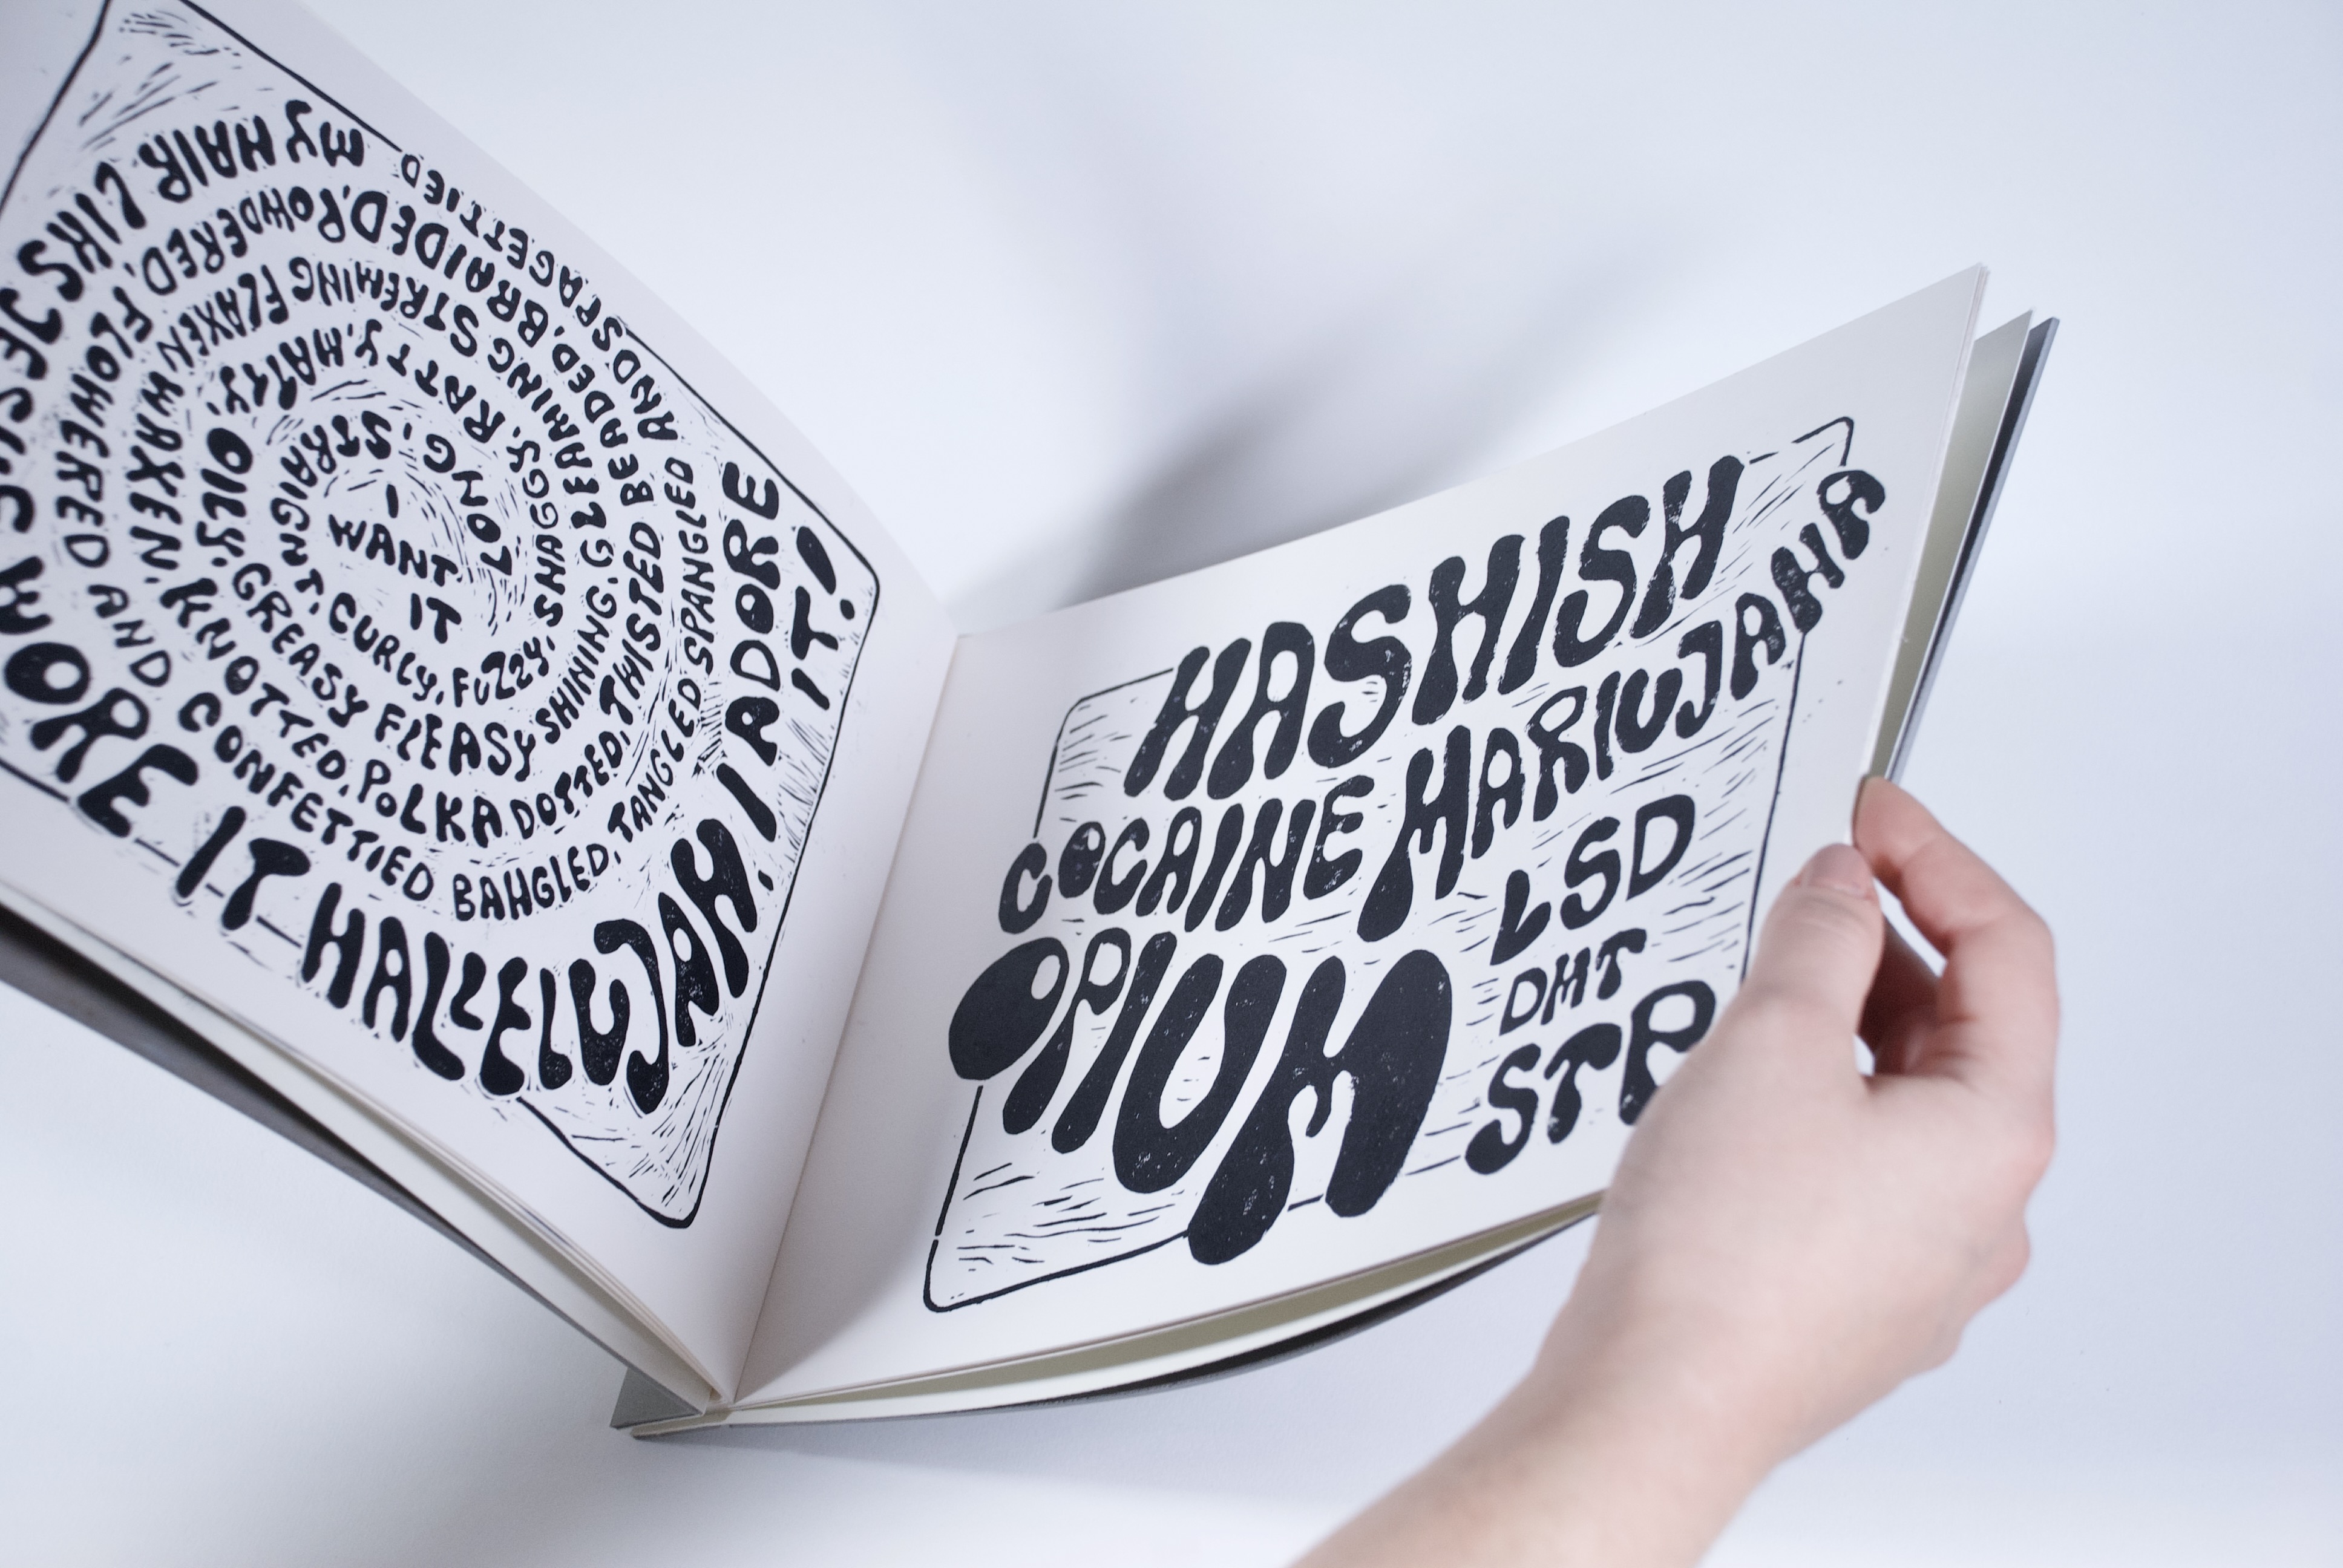 I
WANT
IT
LONG, STRAIGHT, CURLY, FUZZY, SNAGGY, RATTY, MATTY,
OILY, GREASY FLEASY SHINING, GLEAMING STREMING FLAXEN
WAXEN, KNOTTED, POLKA DOTTED, TWISTED BEADED, BRAIDED, POWDERED,
FLOWERED AND CONFETTIED BANGLED, TANGLED SPANGLED AND SPAGETTIED
MY HAIR LIKE JESUS WORE IT HALLELUJAH, I ADORE
IT!
HASHISH
COCAINE MARIUJANA
OPIUM LSD
DMT
STP